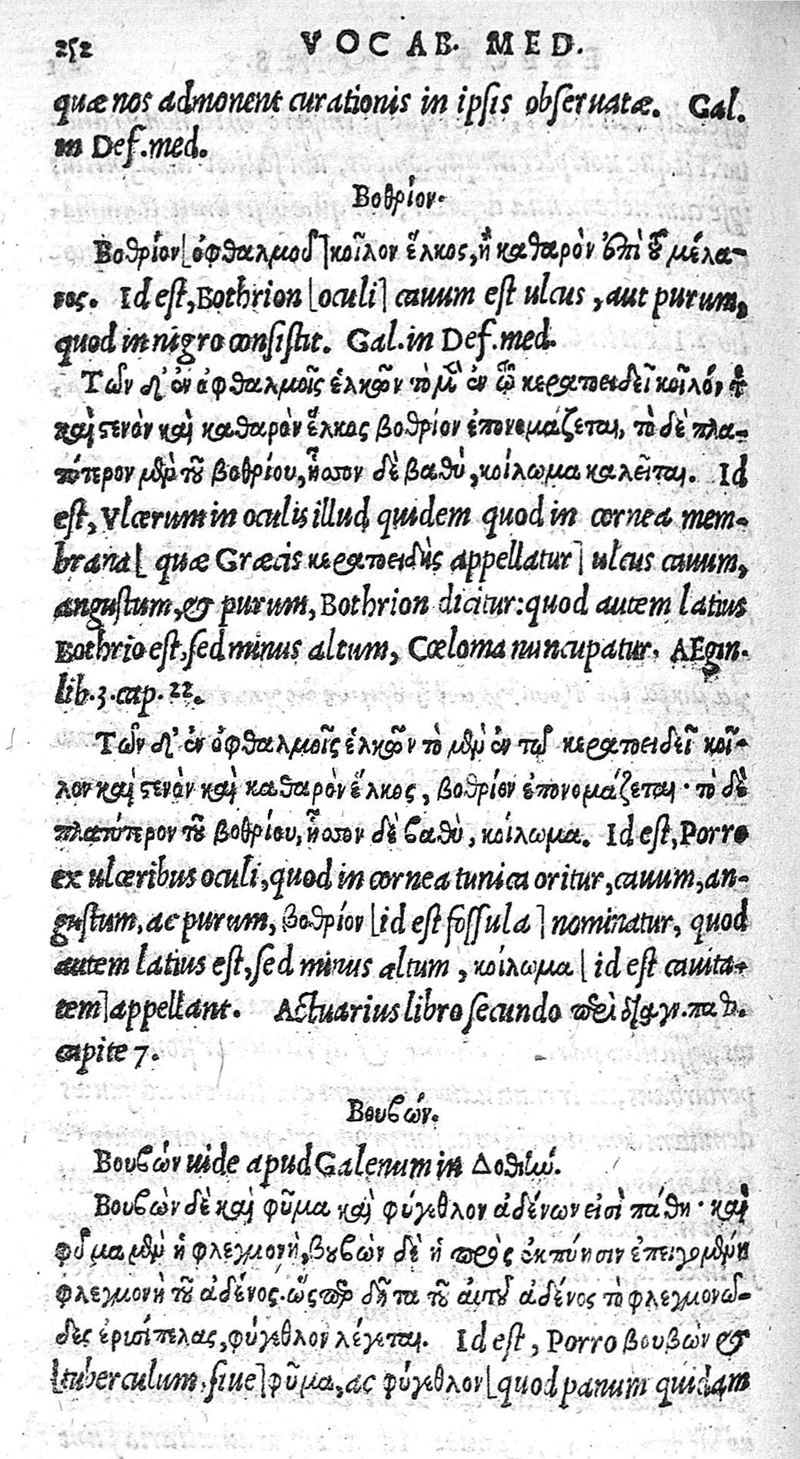 252 VOCAB. MED.
quæ nos admonent curationis in ipsis obseruatæ. Gal.
in Def. med.
Βοθρίον.
Βοθρίον [ὀφθαλμοῦ] κοῖλον ἕλκος, ἢ καθαρὸν ἐπὶ τοῦ μέλα-
νος. Id est, Bothrion [oculi] cauum est ulcus, aut purum,
quod in nigro consistit. Gal. in Def. med.
Τῶν δ' ἐν ὀφθαλμοῖς ἑλκῶν τὸ μὲν ἐν τῷ κερατοειδεῖ κοῖλόν
καὶ στενὸν καὶ καθαρὸν ἕλκος βοθρίον ἐπονομάζεται, τὸ δὲ πλα-
τύτερον μὲν τοῦ βοθρίου, ἧσσον δὲ βαθὺ, κοίλωμα καλεῖται. Id
est, Vlcerum in oculis illud quidem quod in cornea mem-
brana [ quæ Græcis κερατοειδὴς appellatur] ulcus cauum,
angustum, & purum, Bothrion dicitur: quod autem latius
Bothrio est, sed minus altum, Cœloma nuncupatur. AEgin.
lib. 3. cap. 22.
Τῶν δ' ἐν ὀφθαλμοῖς ἑλκῶν τὸ μὲν ἐν τῷ κερατοειδεῖ κοῖ-
λον καὶ στενὸν καὶ καθαρὸν ἕλκος, βοθρίον ἐπονομάζεται· τὸ δὲ
πλατύτερον τοῦ βοθρίου, ἧσσον δὲ βαθὺ, κοίλωμα. Id est, Porro
ex ulceribus oculi, quod in cornea tunica oritur, cauum, an-
gustum, ac purum, βοθρίον [id est fossula] nominatur, quod
autem latius est, sed minus altum, κοίλωμα [id est cauita-
tem] appellant. Actuarius libro secundo περὶ διαγ. παθ.
capite 7.
Βουβών.
Βουβών uide apud Galenum in Δοθιὼ.
Βουβὼν δὲ καὶ φῦμα καὶ φύγεθλον ἀδένων εἰσὶ πάθη· καὶ
φῦμα μὲν ἡ φλεγμονὴ, βουβὼν δὲ ἡ πρὸς ἐκπύησιν ἐπειγομένη
φλεγμονὴ τοῦ ἀδένος. ὥσπερ τοῦ ἀδένος τὸ φλεγμονῶ-
δες ἐρισίπελας, φύγεθλον λέγεται. Id est, Porro βουβὼν &
[tuberculum, siue] φῦμα, ac φύγεθλον [quod panum quidam